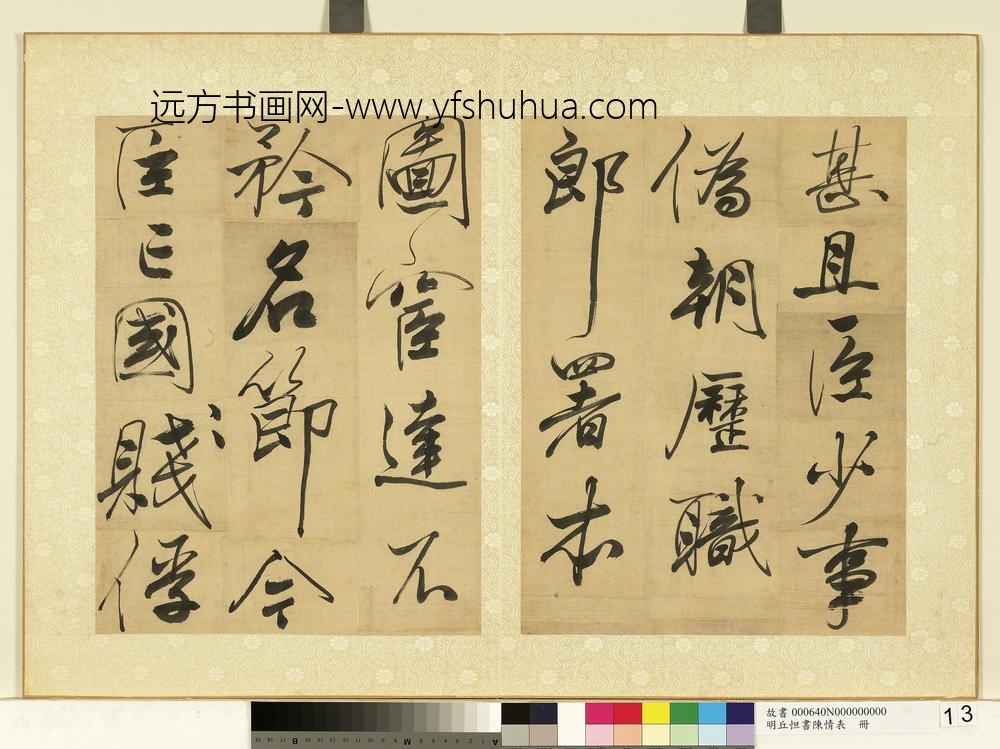 远方书画网-www.yfshuhua.com
甚且臣少事
偽朝歷職
郎署本
圖宦達不
矜名節今
臣亡國賤俘
故書 000640N000000000
明丘怛書陳情表 冊
13